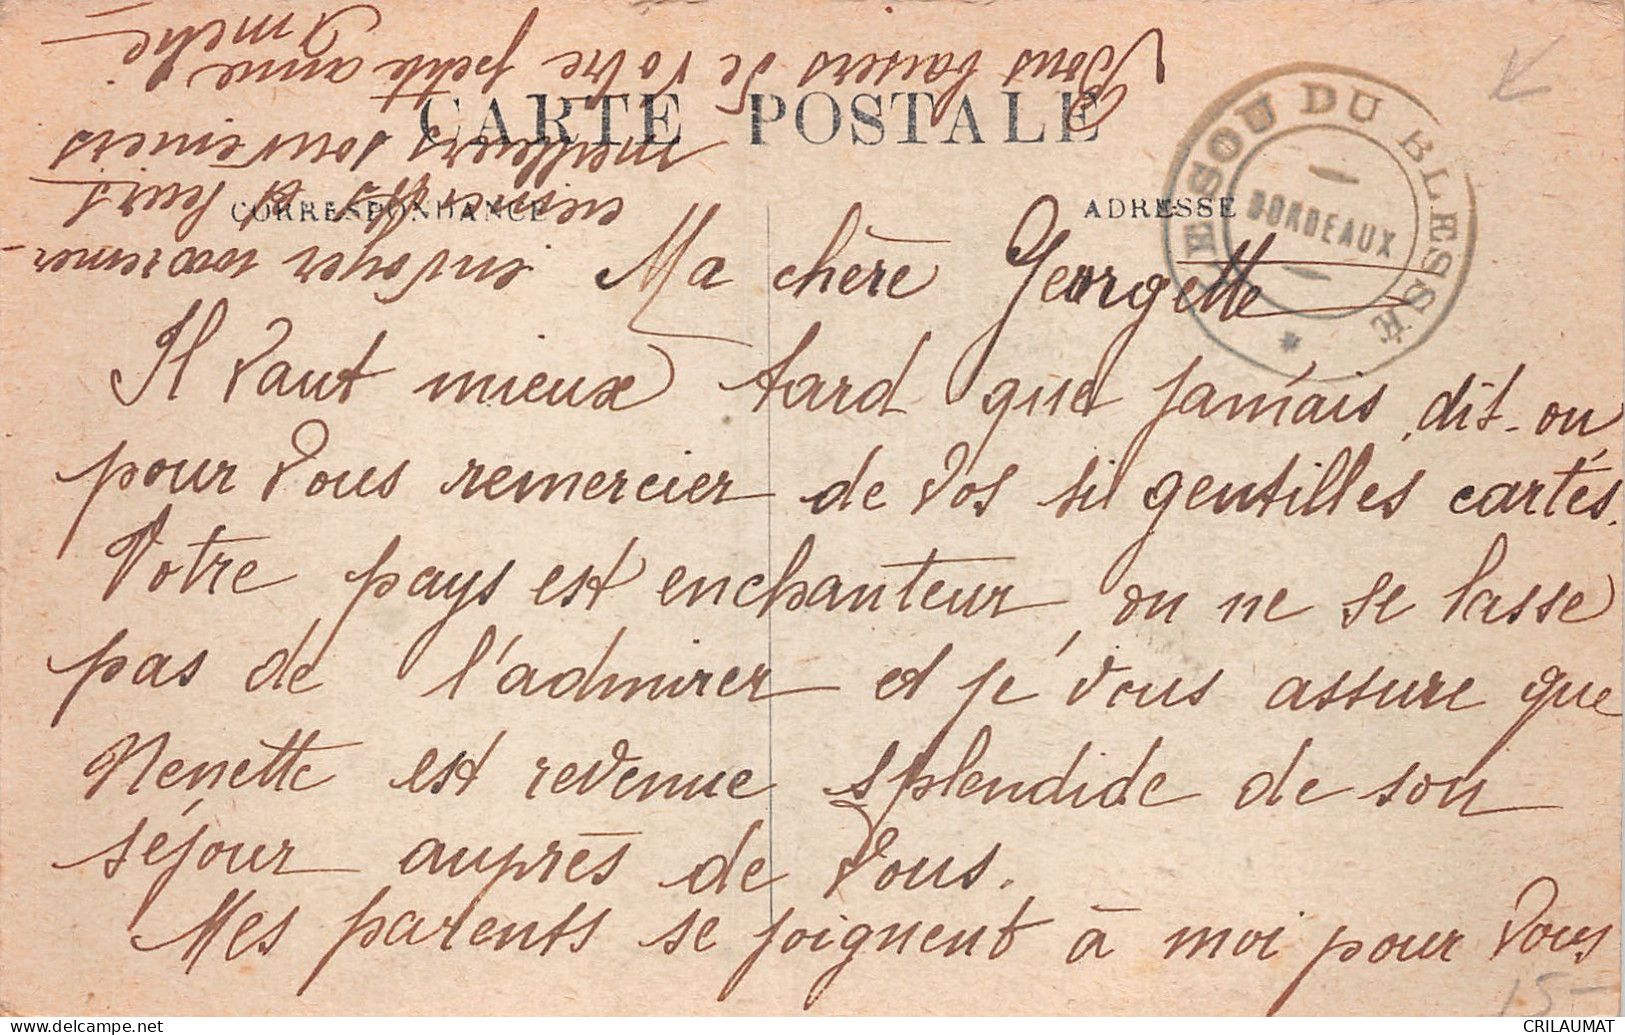 CARTE POSTALE
CORRESPONDANCE
ADRESSE
LE SOU DU BLESSÉ
BORDEAUX
Ma chère Georgette
Il vaut mieux tard que jamais, dit-on
pour vous remercier de vos si gentilles cartes.
Votre pays est enchanteur, on ne se lasse
pas de l'admirer et je vous assure que
Nenette est revenue splendide de son
séjour auprès de vous.
Mes parents se joignent à moi pour vous
envoyer nos remer-
ciements et leurs
meilleurs souvenirs
Bons baisers de votre petite amie
15-
CRILAUMAT